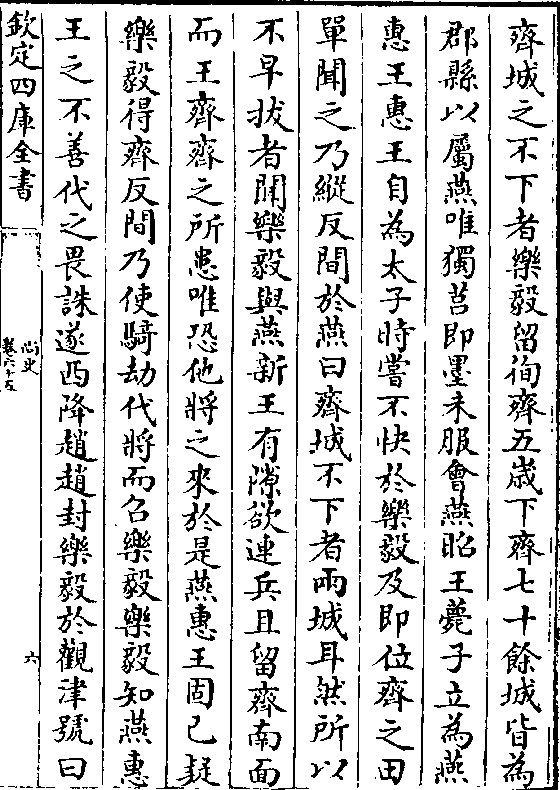 齊城之不下者樂毅留徇齊五歲下齊七十餘城皆為
郡縣以屬燕唯獨莒即墨未服會燕昭王薨子立為燕
惠王惠王自為太子時嘗不快於樂毅及即位齊之田
單聞之乃縱反間於燕曰齊城不下者兩城耳然所以
不早拔者聞樂毅與燕新王有隙欲連兵且留齊南面
而王齊齊之所患唯恐他將之來於是燕惠王固已疑
樂毅得齊反間乃使騎劫代將而召樂毅樂毅知燕惠
王之不善代之畏誅遂西降趙趙封樂毅於觀津號曰
欽定四庫全書
尚史
卷六十五
六